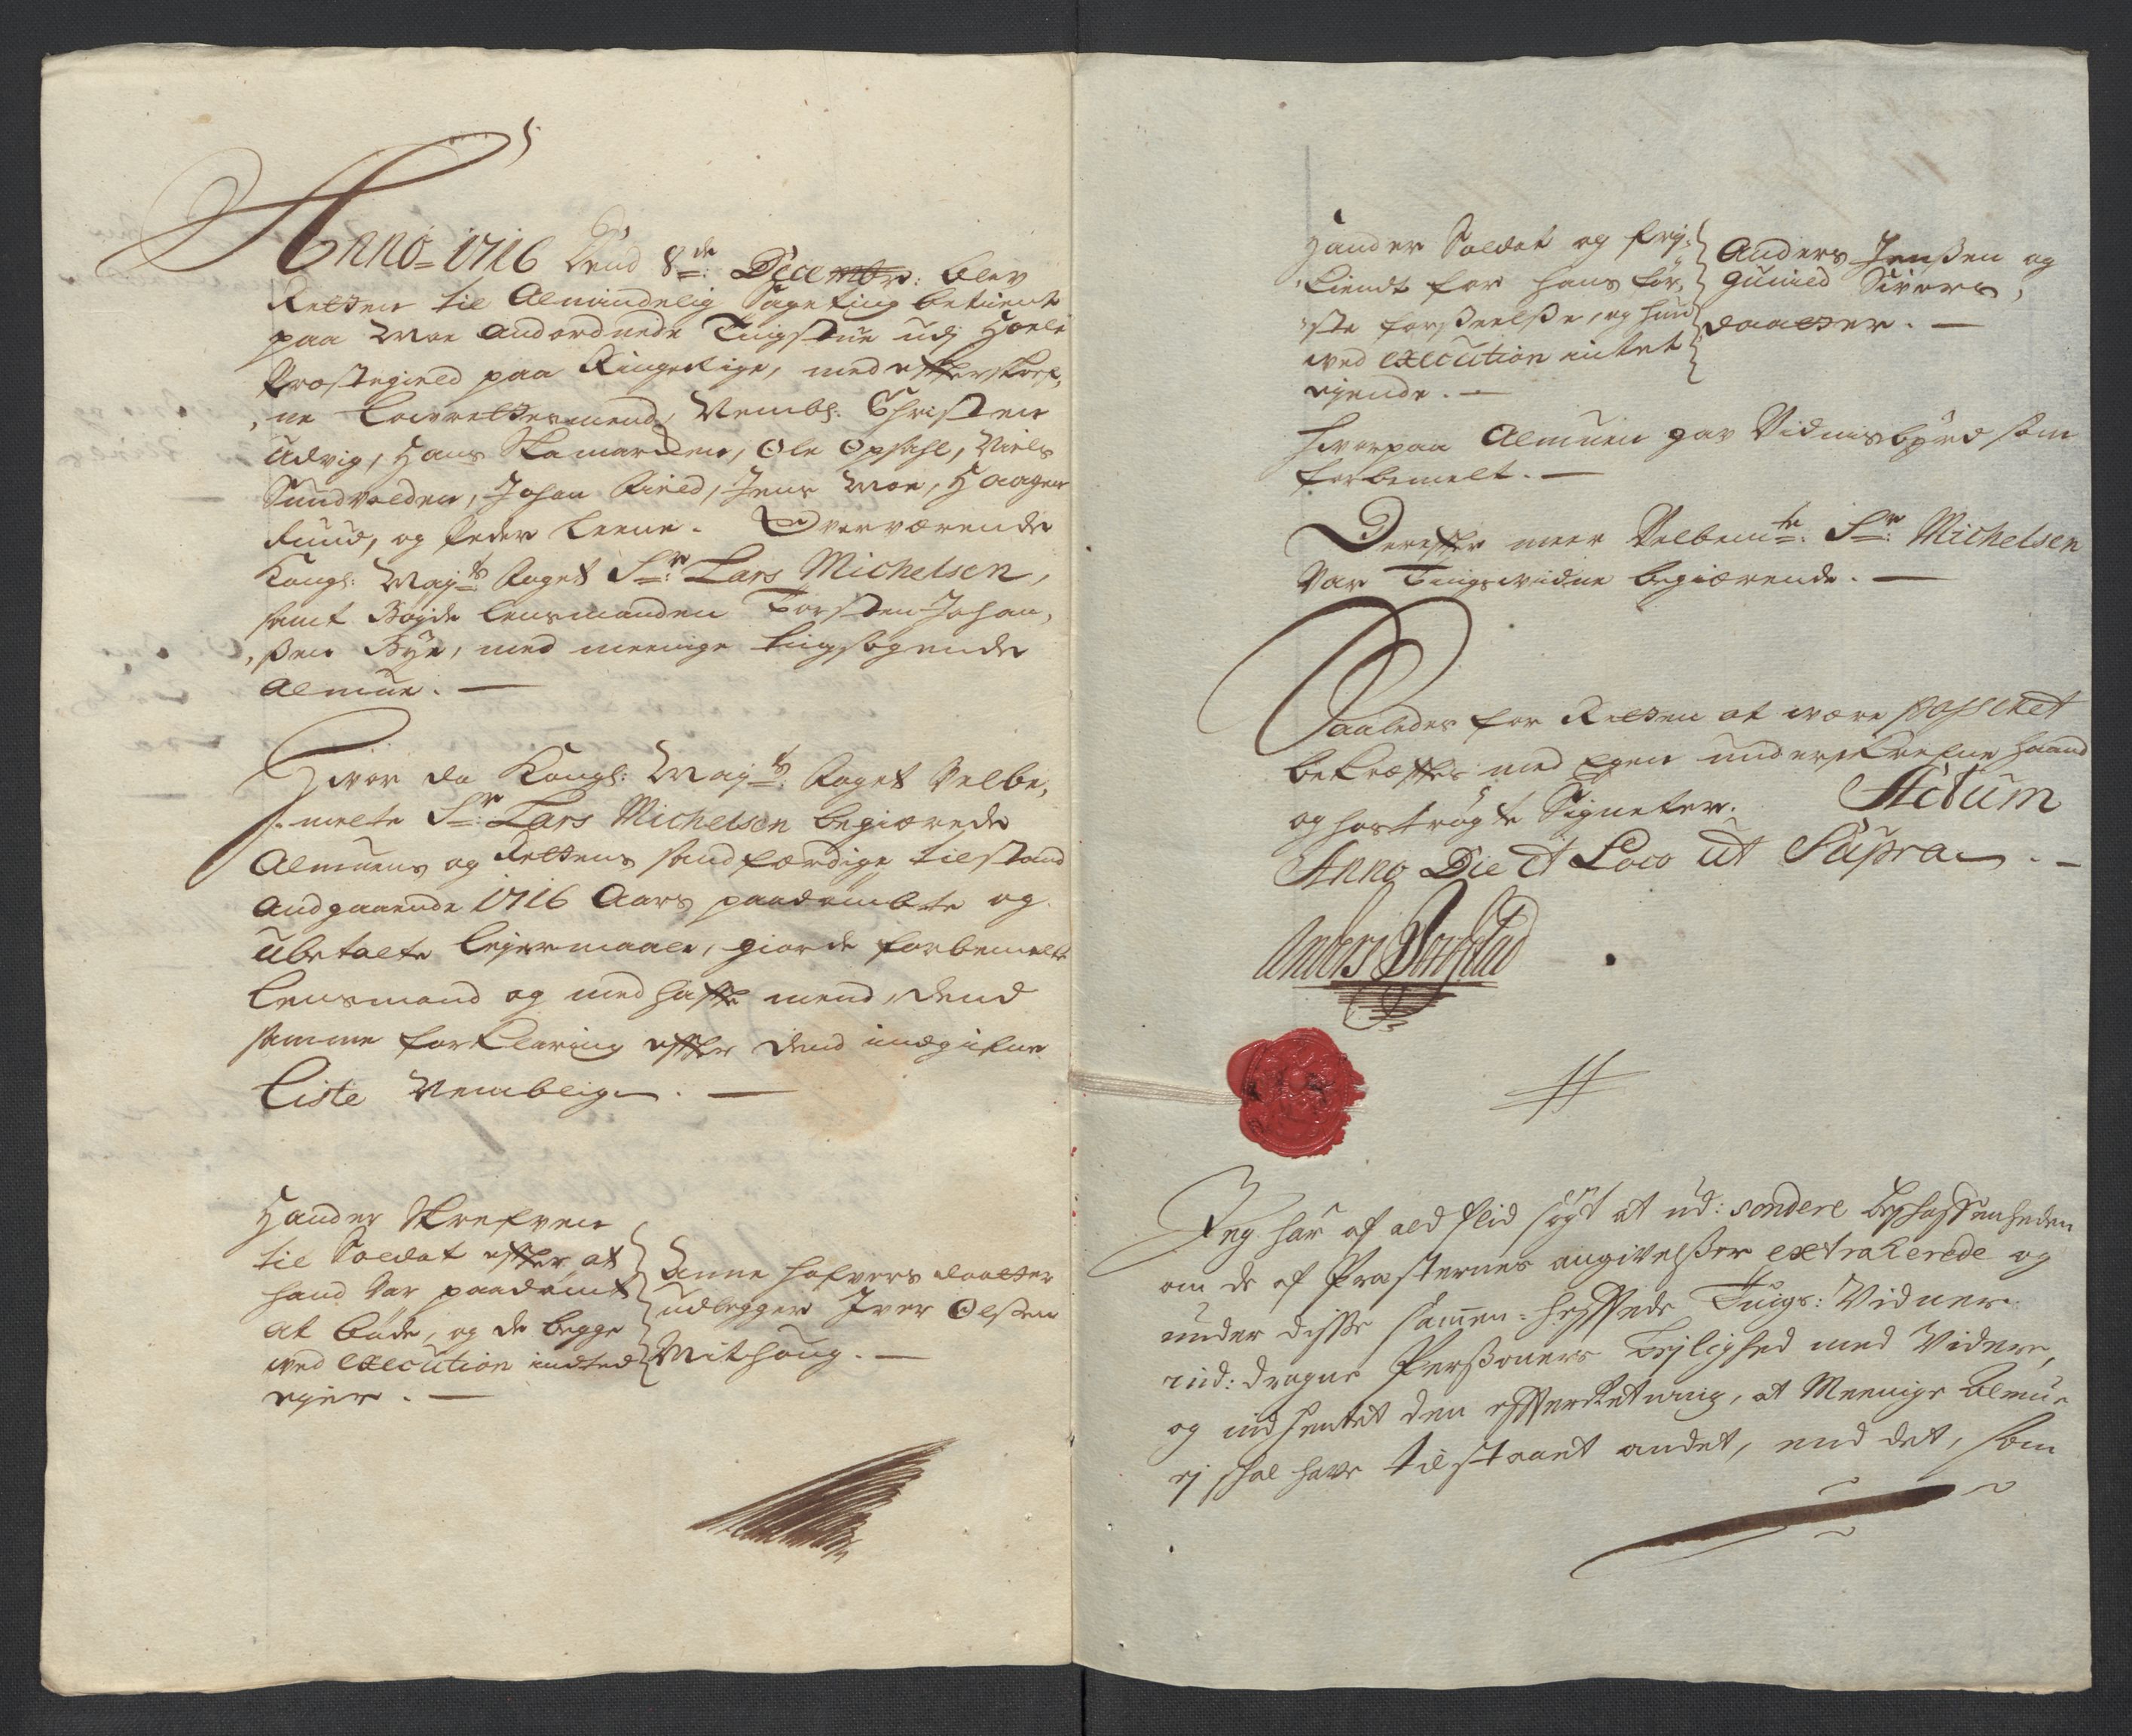 Anno 1716 Dend 8de: Decembr: blev
Retten til Almindelig Sageting betient
paa Moe andordnede Tingstue udj Hoele
Præstegield paa Ringerige, med efterskref,,
,,ne Lavrettesmend, Nembl: Christen
Udvig, Hans Skamarcken, Ole Opsahl, Niels
Sundvolden, Johan Field, Jens Moe, Haagen
Ruud, og Peder Leene. Overværende
Kongl: Maj:ts Foget Sr: Lars Michelsen,
samt Bøyde lensmanden Torsten Johan,,
,,ßen Bye, med meenige tingsøgende
Almue. —
Hvor da Kongl: Maj:ts Foget Velbe,,
,,melte Sr: Lars Michelsen begiærede
Almuens og Rettens sandfærdige tilstand
andgaaende 1716 Aars paadømbte og
ubetalte Lejermaale, giorde forbemelte
Lensmand og medhafte mend, Dend
samme forklaring efter dend indgifne
Liste Nemblig. —
Hand er Skrefven
til Soldat efter at
hand var paadømt
at bøde, og de begge
ved execution indted
ejer. —
Anne Halvors daatter
udlegger Iver Olßen
Mithoug. —
Hand er Soldat og frij,,
,,kiendt for hans før,,
,,ste forßeelße, og hun
ved execution intet
ejende. —
Anders Jenßen og
Gunild Sivers,,
daatter. —
Hvorpaa Almuen gav Vidnisbyrd som
forbemelt. —
Derefter meer Velbemte: Sr: Michelsen
Var Tingsvidne begiærende. —
Saaledes for Retten at være passeret
bekræftes med Egen underskrefne haand
og hostrøgte Signeter. Actum
Anno Die et Loco ut Supra. —
Anders
Jeg har af ald flid søgt at ud: sondere beschaffenheden
om de af Præsternes angivelßer extraherede og
under disse sammen-hefftede Tings: Vidner
ind: dragne Perßoners Lejlighed med Videre,
og indhentet den efterretning, at Meenige Almue
ej skal have tilstaaet andet, end det, som